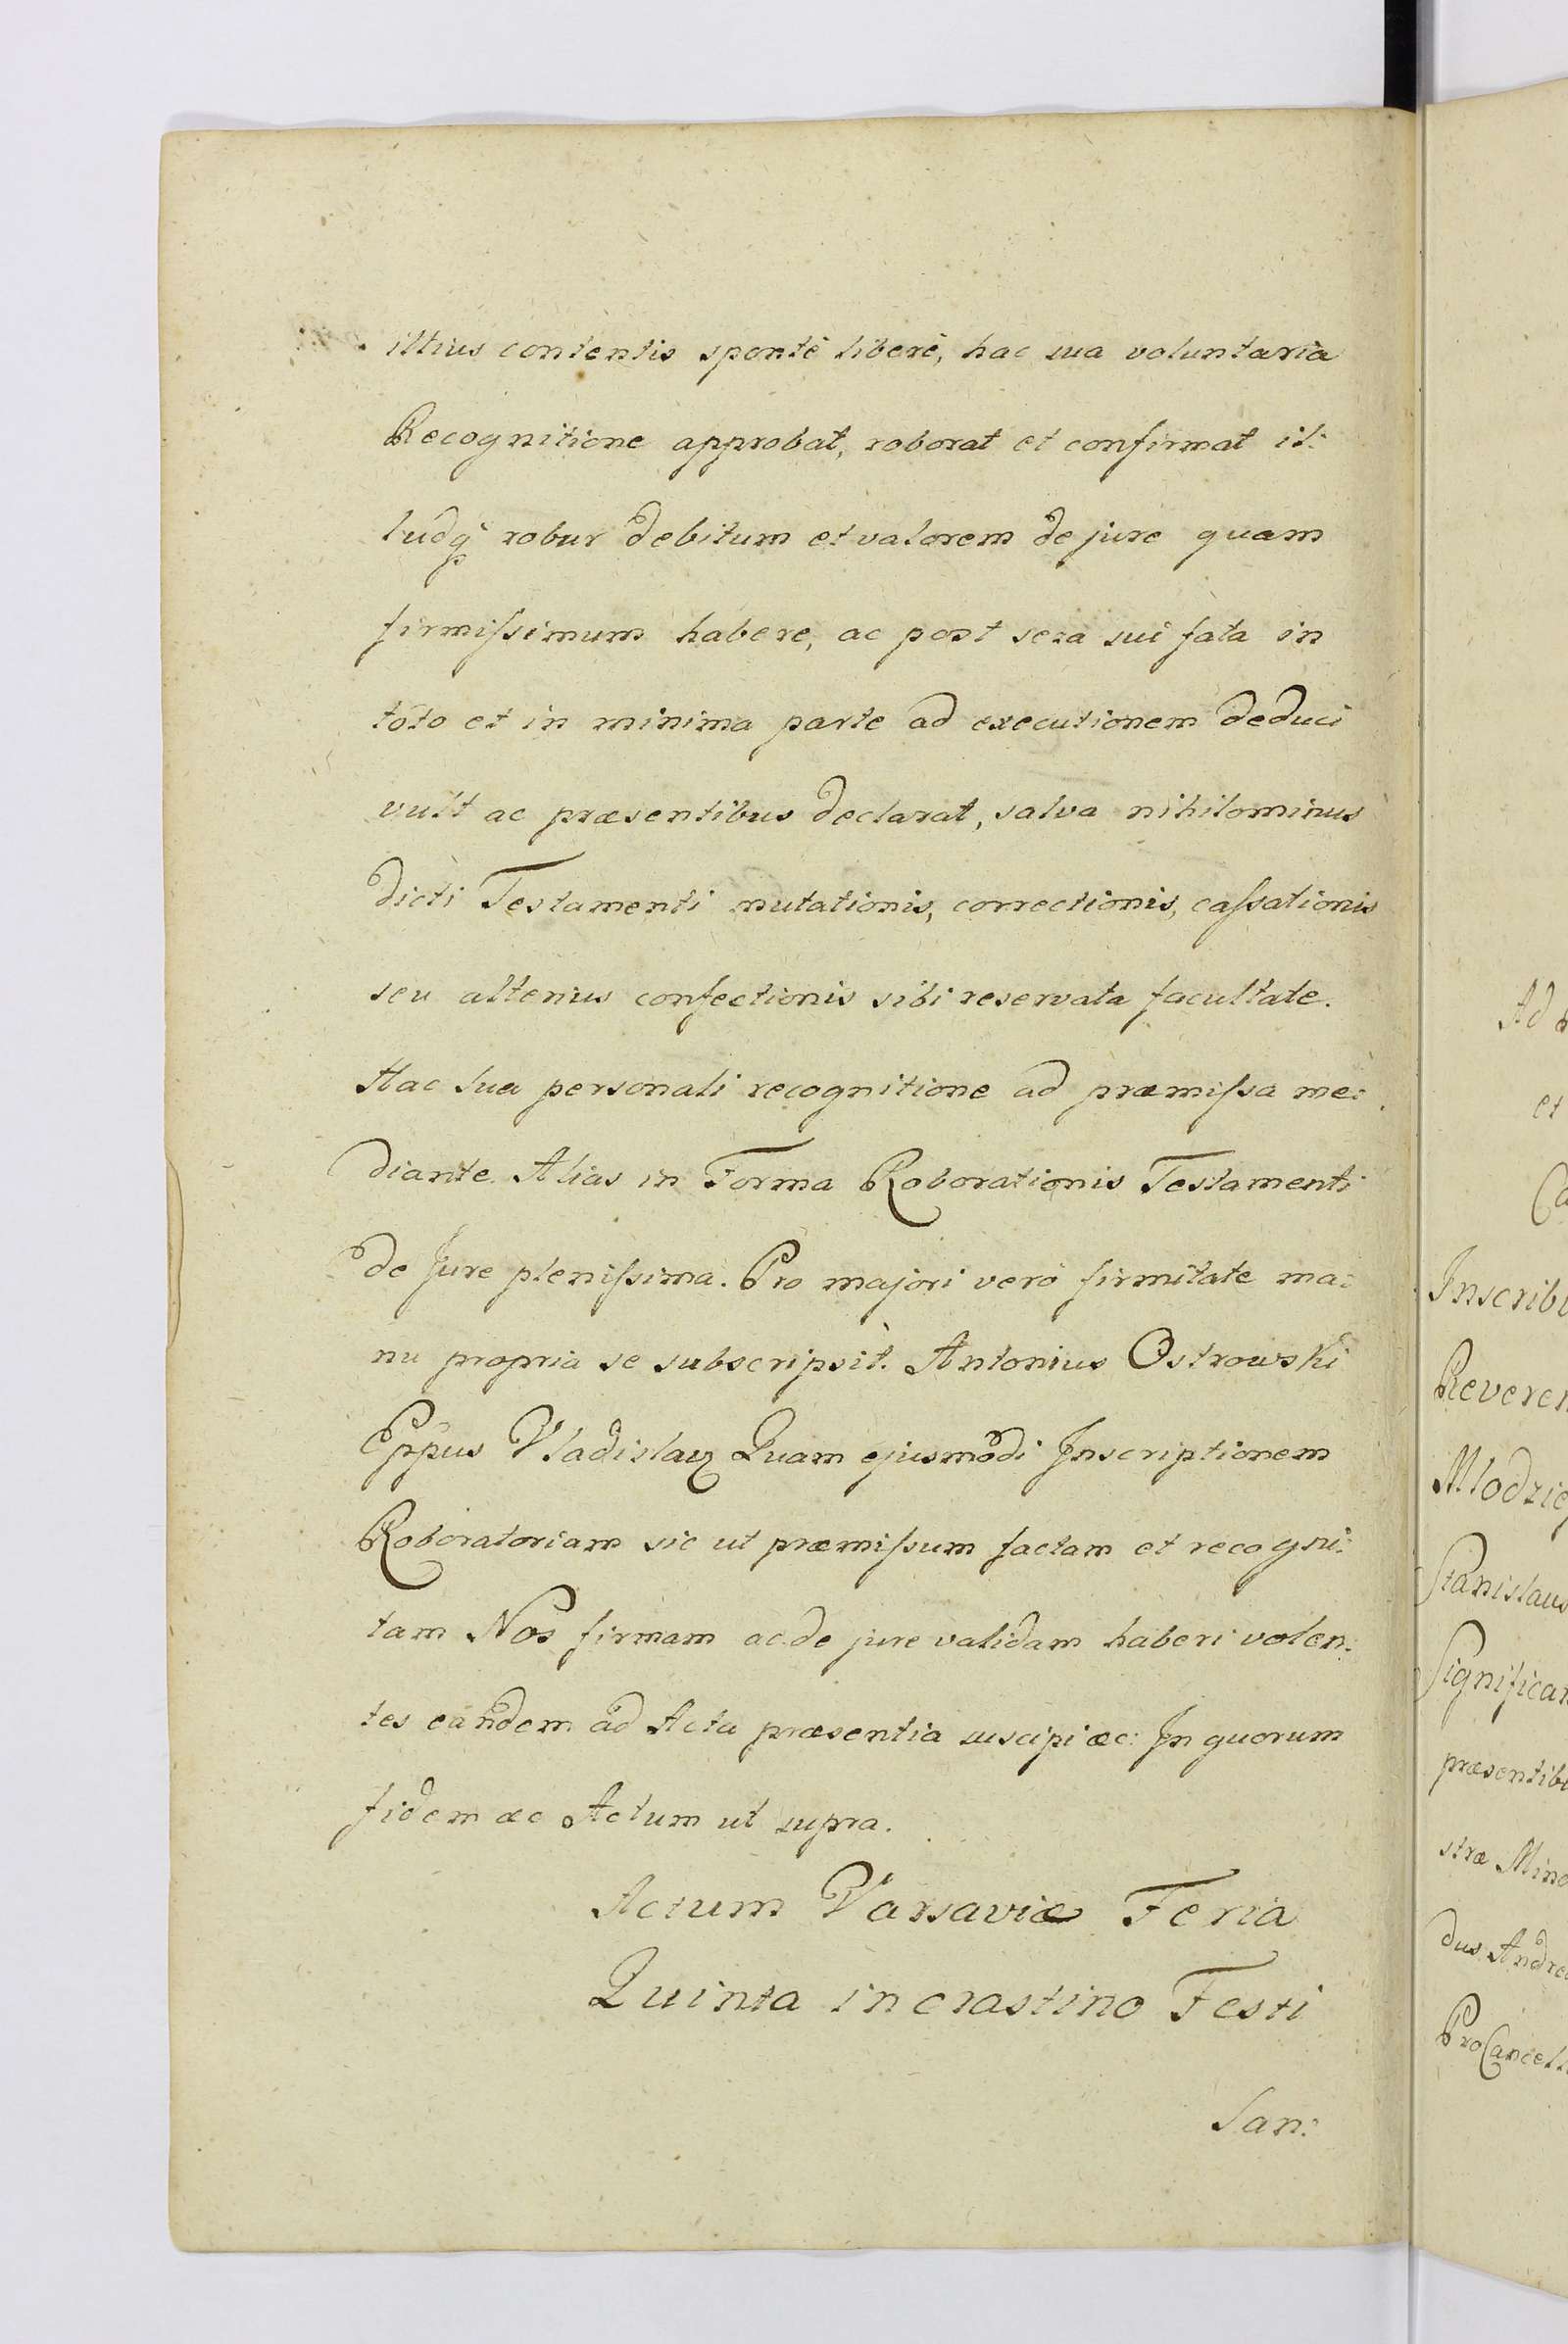 illius contentis spontè liberè, hac sua voluntaria
Recognitione approbat, roborat et confirmat il:
ludq robur debitum et valorem de jure quam
firmissimum habere, ac post sera sui fata in
toto et in minima parte ad executionem deduci
vult ac præsentibus declarat, salva nihilominus
dicti Testamenti mutationis, correctionis, cassationis
seu alterius confectionis sibi reservata facultate.
Hac sua personali recognitione ad præmissa me:
diante. Alias in Forma Roborationis Testamenti
de Jure plenissima. Pro majori verò firmitate ma:
nu propria se subscripsit. Antonius Ostrowski
Eppus Vladislav Quam ejusmodi Inscriptionem
Roboratoriam sic ut præmissum factam et recogni:
tam Nos firmam ac de jure validam haberi volen:
tes eandem ad Acta præsentia suscipi æc: In quorum
fidem æc Actum ut supra.
Actum Varsaviæ Feria
Quinta in crastino Festi
San:
Ad
et
Ca
Inscrib
Reveren
Mlodzie
Stanislaus
Significa
præsentib
stræ Min
dus Andre
ProCancell